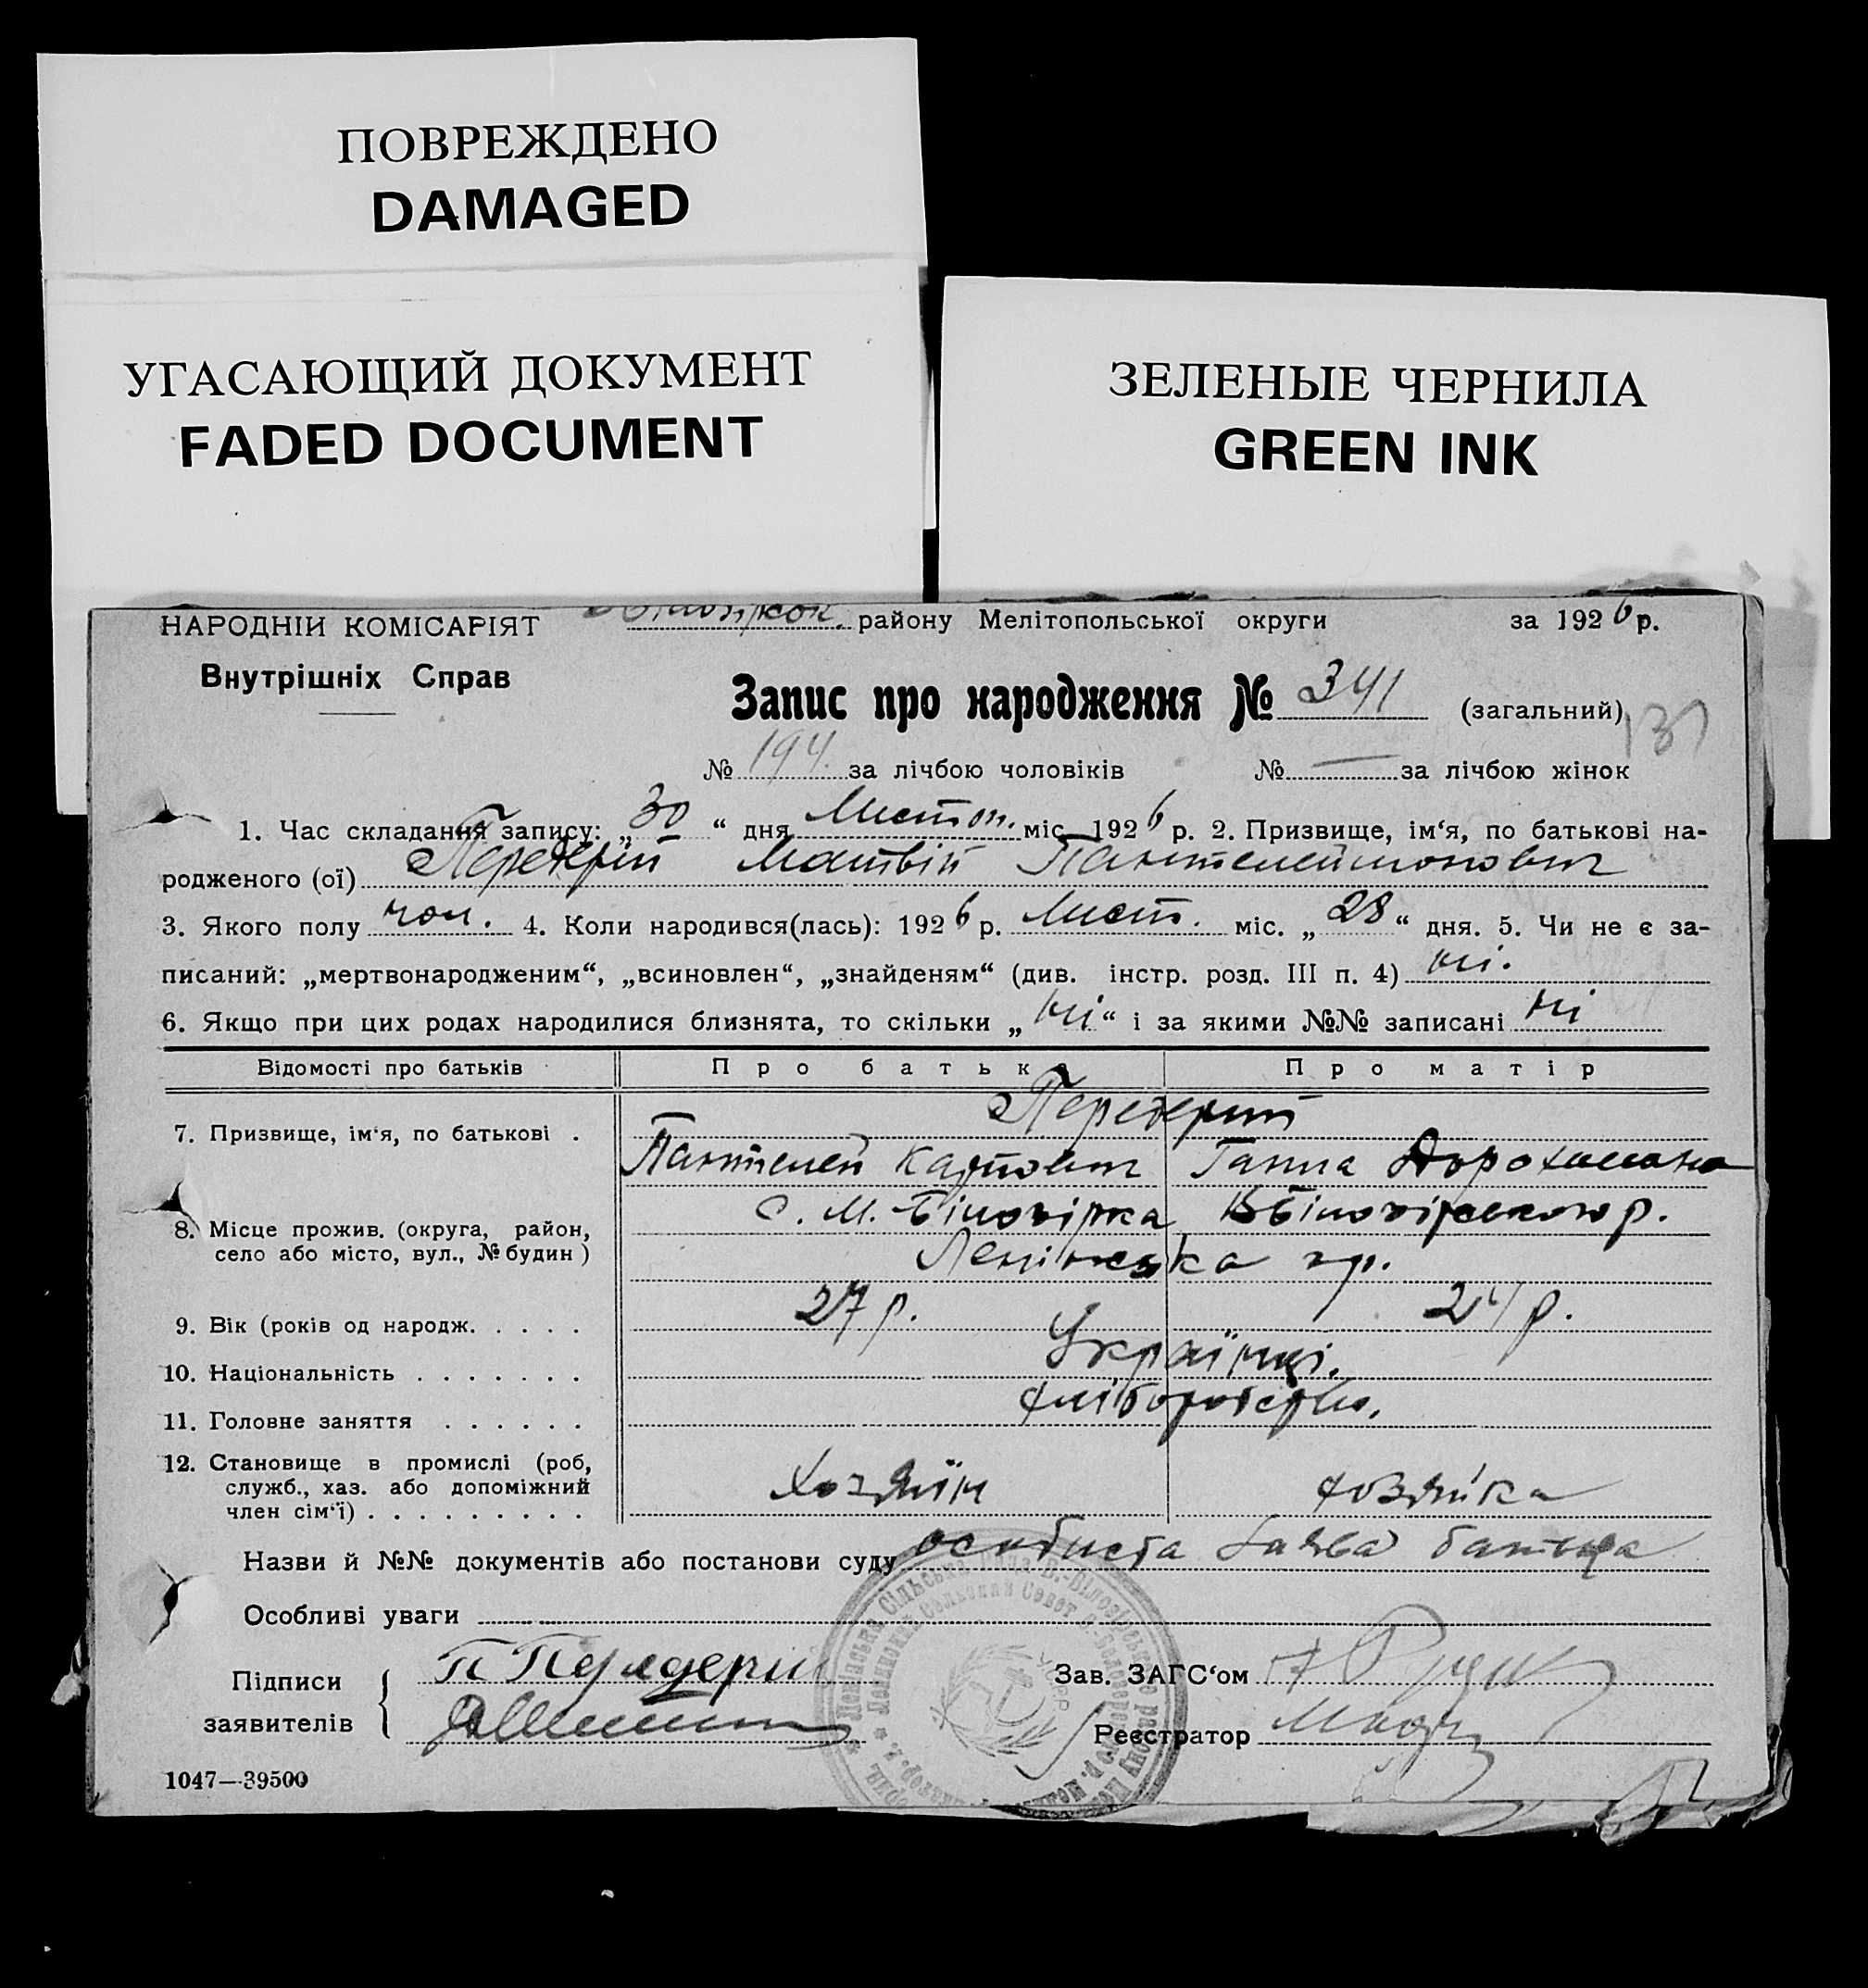 ПОВРЕЖДЕНО
DAMAGED
УГАСАЮЩИЙ ДОКУМЕНТ
FADED DOCUMENT
ЗЕЛЕНЫЕ ЧЕРНИЛА
GREEN INK
НАРОДНІЙ КОМІСАРІЯТ
Внутрішніх Справ
району Мелітопольської округи за 1926 р.
Запис про народження № 341 (загальний) 137
№ 194 за лічбою чоловіків № — за лічбою жінок
1. Час складання запису: „30“ дня Листоп. міс. 1926 р. 2. Призвище, ім‘я, по батькові на-
родженого (ої) Передерій Матвій Пантелеймонович
3. Якого полу чол. 4. Коли народився(лась): 1926 р. Лист. міс. „28“ дня. 5. Чи не є за-
писаний: „мертвонародженим“, „всиновлен“, „знайденям“ (див. інстр. розд. III п. 4) ні.
6. Якщо при цих родах народилися близнята, то скільки „ні“ і за якими №№ записані ні
Відомості про батьків Про батька Про матір
7. Призвище, ім‘я, по батькові . Передерій
Пантелей Карпович Ганна
8. Місце прожив. (округа, район, с. М. Білозірка В Білозірського р.
село або місто, вул., № будин) Ленінська
9. Вік (років од народж. . . . . 27 р. 24 р.
10. Національність . . . . . . . Українці.
11. Головне заняття . . . . . . хліборобство.
12. Становище в промислі (роб,
служб., хаз. або допоміжний Хозяїн хозяйка
член сім‘ї) . . . . . . . . .
Назви й №№ документів або постанови суду особиста заява батька
Особливі уваги
Підписи П Передерий Зав. ЗАГС‘ом
заявителів Реєстратор
1047—39500